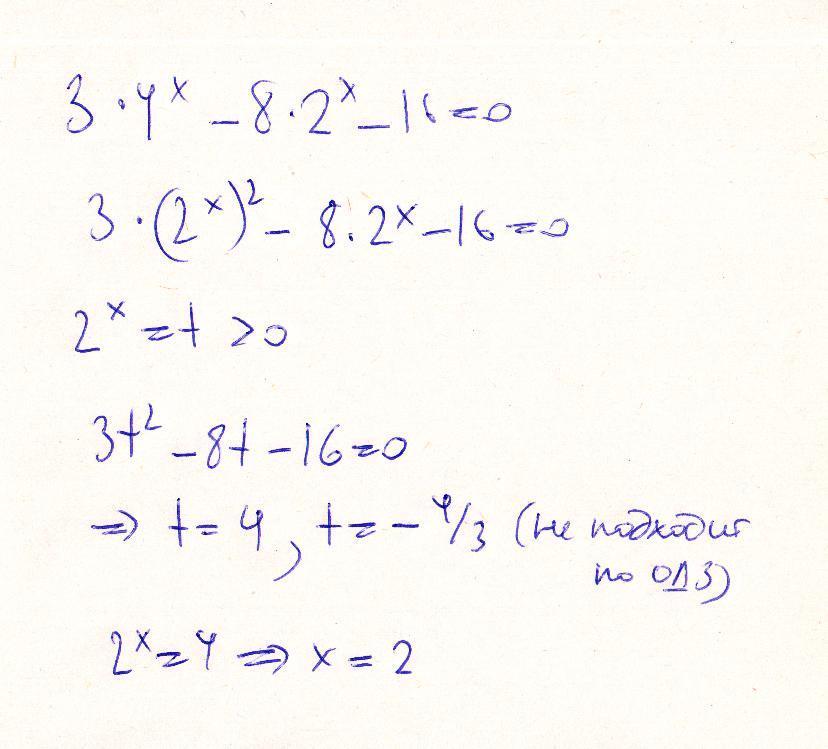 3·4^x − 8·2^x − 16 = 0
3·(2^x)^2 − 8·2^x − 16 = 0
2^x = t > 0
3t^2 − 8t − 16 = 0
⇒ t = 4, t = −4/3 (не подходит
по ОДЗ)
2^x = 4 ⇒ x = 2